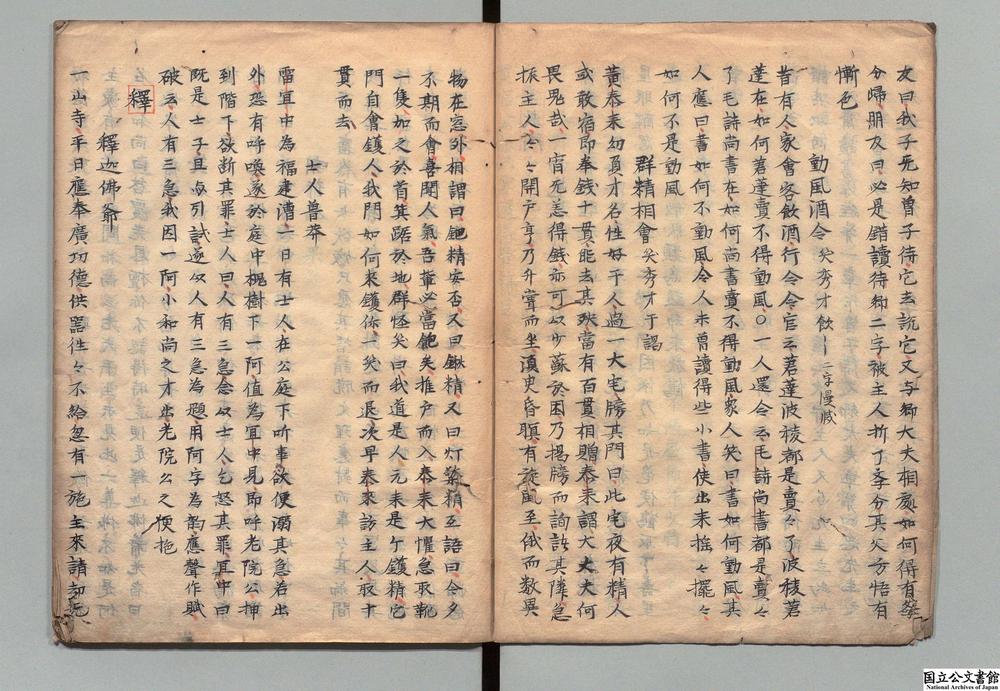 友曰我子无知曾子待它去説它又与卿大夫相處如何得有發
分歸朋友曰必是錯讀待卿二字被主人折了季分其父方悟有
慚色
動風酒令 笑秀才飲 二字漫滅
昔有人家會客飲酒行令令官云莙薘波稜都是賣々了波稜莙
薘在如何莙薘賣不得動風〇一人還令云毛詩尚書都是賣々
了毛詩尚書在如何尚書賣不得動風家人笑曰書如何動風其
人應曰書如何不動風令人未曽讀得些小書使出来搖々擺々
如何不是動風
群精相會 笑秀才于謁
黄泰来幼負才名性好干人過一大宅牓其門曰此宅夜有精人
或敢宿即奉錢十貫能去其殃當有百貫相贈泰来謂大丈夫何
畏鬼哉一宿无恙得錢亦可以少蘇於困乃揭牓而詢訪其隣急
振主人々々開戸亨乃升堂而坐湏臾昏瞑有旋風至俄而数異
物在窓外相謂曰鉋精安否又曰鍬精又曰灯檠精互語曰今夕
不期而會喜聞人氣吾輩必當飽矣推户而入泰来大懼急取靴
一隻加之於首箕踞於地群怪笑曰我道是人元来是个鑊精它
門自會鑊人我門如何来鑊你一笑而退次早泰来訪主人取十
貫而去
士人曽莽
雷宜中為福建漕一日有士人在公庭下听事欲便溺其急若出
外恐有呼喚遂於庭中槐樹下一阿值為宜中見即呼老院公押
到階下欲断其罪士人曰人有三急念以士人乞恕其罪宜中曰
既是士子且与引試遂以人有三急為題用阿字為韵應聲作賦
破云人有三急我因一阿小和尚之才出老院公之便拖
釋
釋迦佛爺
一山寺平日應奉廣功德供噐徃々不給忽有一施主来請却无
国立公文書館
National Archives of Japan